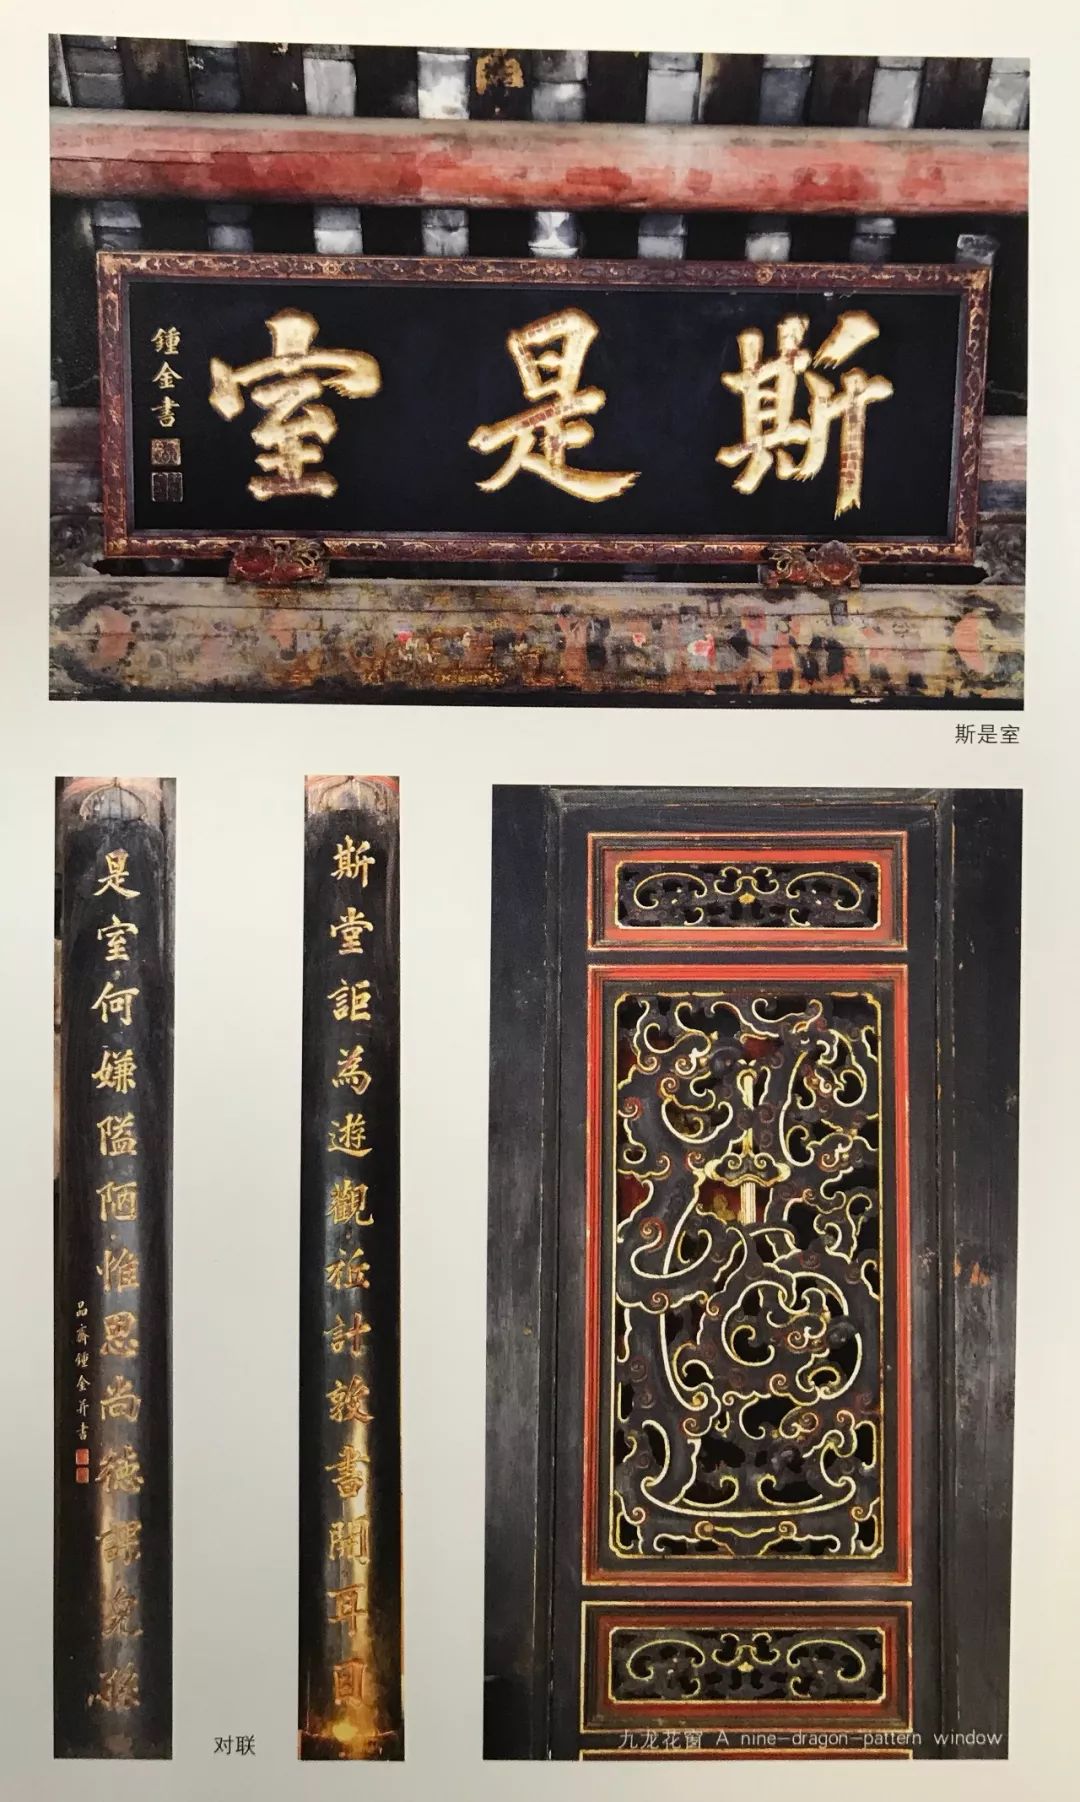 斯是室
鍾金書
斯是室
斯堂詎為遊觀祗計敦書開耳目
是室何嫌隘陋惟思尚德課兒孫
品齋鍾金并書
对联
九龙花窗 A nine-dragon-pattern window